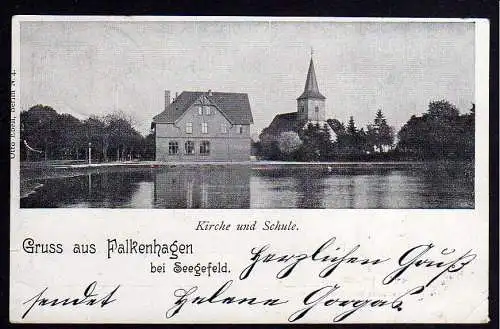 Otto Loeff, Berlin N. 4.
Kirche und Schule.
Gruss aus Falkenhagen
bei Seegefeld.
Herzlichen Gruß
sendet Helene Gorgas